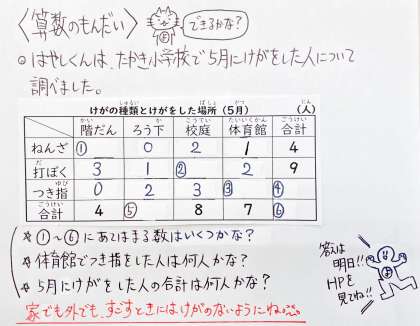 〈算数のもんだい〉
よ
できるかな?
○はやしくんは、たかき小学校で5月にけがをした人について
調べました。
けがの種類とけがをした場所（5月）（人）
階だん ろう下 校庭 体育館 合計
ねんざ ① 0 2 1 4
打ぼく 3 1 ② 2 9
つき指 0 2 3 ③ ④
合計 4 ⑤ 8 7 ⑥
＊①～⑥にあてはまる数はいくつかな?
＊体育館でつき指をした人は何人かな?
＊5月にけがをした人の合計は何人かな?
家でも外でも、すごすときにはけがのないようにね。
答えは
明日!!
HPを
見てね!!
よ